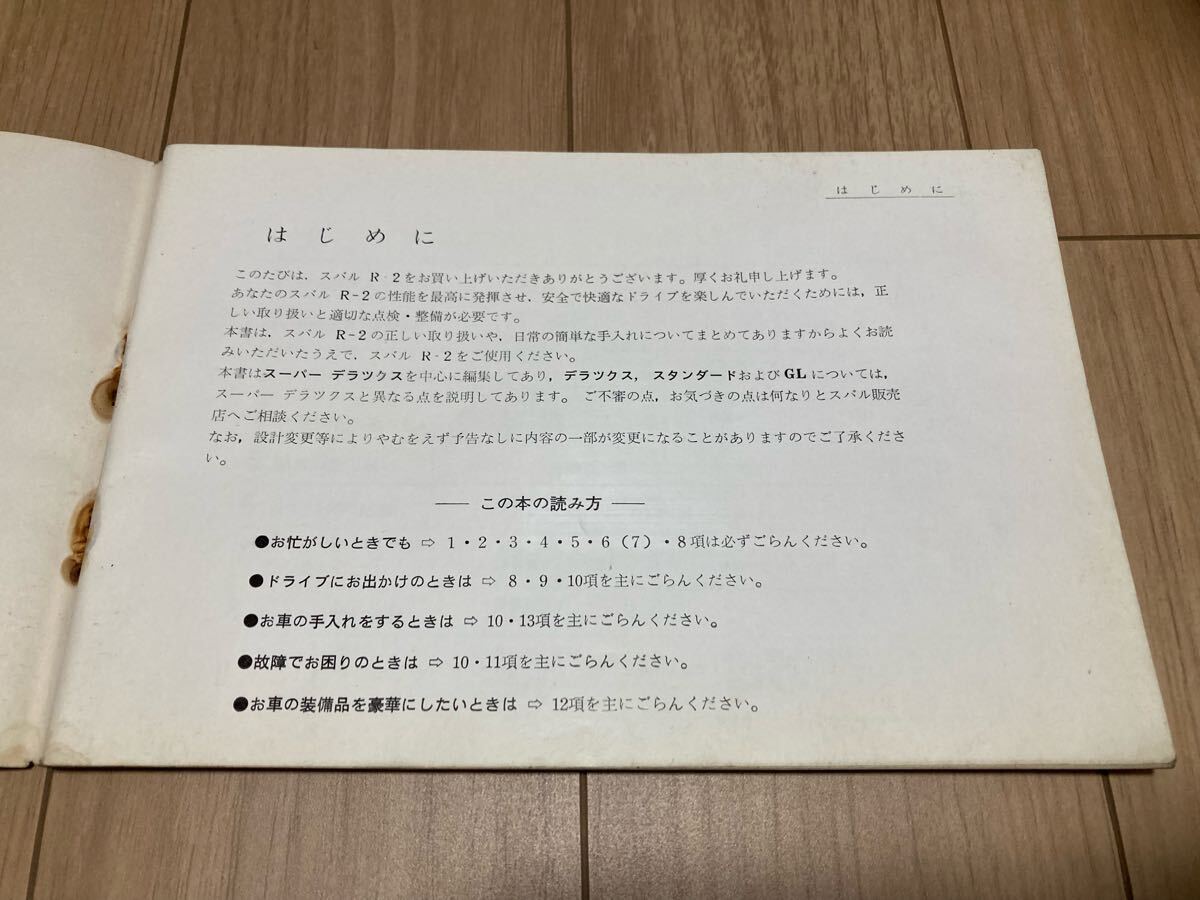 は じ め に
は じ め に
このたびは、スバル R-2をお買い上げいただきありがとうございます。厚くお礼申し上げます。
あなたのスバル R-2の性能を最高に発揮させ，安全で快適なドライブを楽しんでいただくためには，正
しい取り扱いと適切な点検・整備が必要です。
本書は，スバル R-2の正しい取り扱いや，日常の簡単な手入れについてまとめてありますからよくお読
みいただいたうえで，スバル R-2をご使用ください。
本書はスーパー デラツクスを中心に編集してあり，デラツクス，スタンダードおよびGLについては，
スーパー デラツクスと異なる点を説明してあります。 ご不審の点，お気づきの点は何なりとスバル販売
店へご相談ください。
なお，設計変更等によりやむをえず予告なしに内容の一部が変更になることがありますのでご了承くださ
い。
── この本の読み方 ──
●お忙がしいときでも ⇨ 1・2・3・4・5・6（7）・8項は必ずごらんください。
●ドライブにお出かけのときは ⇨ 8・9・10項を主にごらんください。
●お車の手入れをするときは ⇨ 10・13項を主にごらんください。
●故障でお困りのときは ⇨ 10・11項を主にごらんください。
●お車の装備品を豪華にしたいときは ⇨ 12項を主にごらんください。